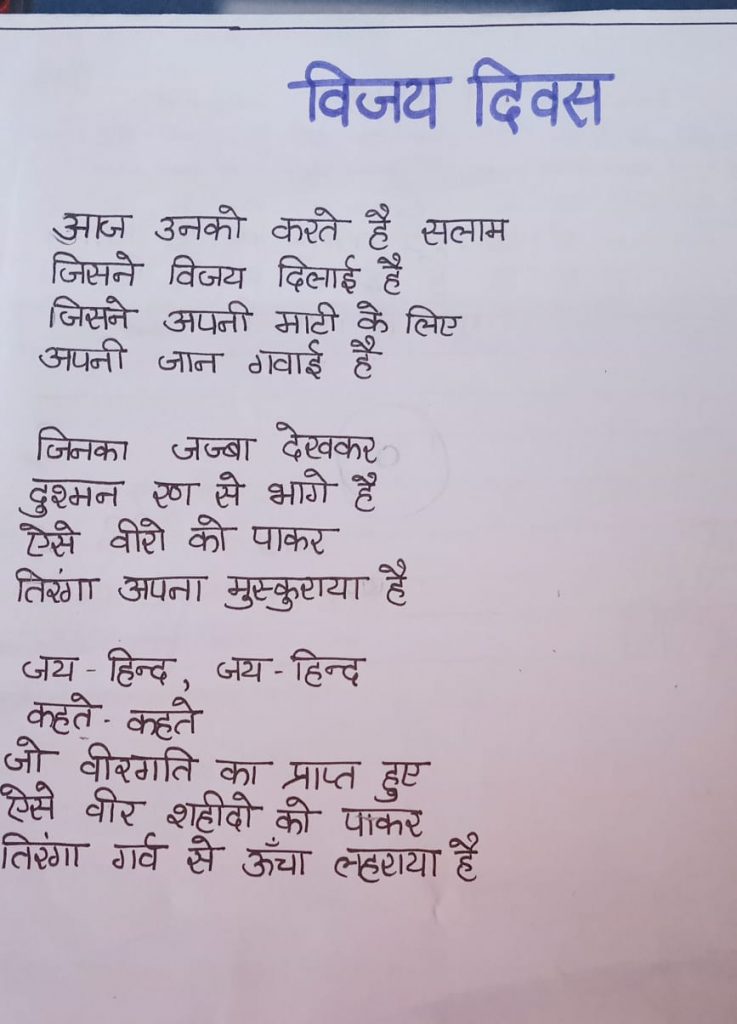 विजय दिवस
आज उनको करते है सलाम
जिसने विजय दिलाई है
जिसने अपनी माटी के लिए
अपनी जान गवाई है
जिनका जज्बा देखकर
दुश्मन रण से भागे है
ऐसे वीरो को पाकर
तिरंगा अपना मुस्कुराया है
जय - हिन्द , जय - हिन्द
कहते - कहते
जो वीरगति का प्राप्त हुए
ऐसे वीर शहीदो को पाकर
तिरंगा गर्व से ऊँचा लहराया है